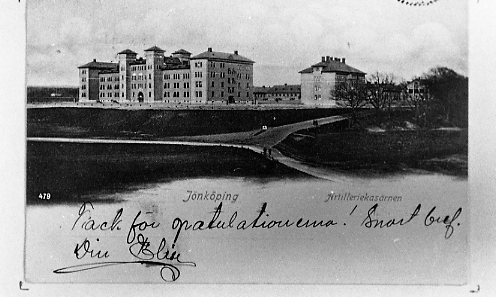 479
Jönköping Artillerikasärnen
Tack för gratulationerna! Snart bref.
Din Elin